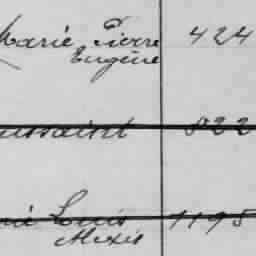 Marie Pierre 424
Eugène
ussaint 822
né Louis 1195
Alexis